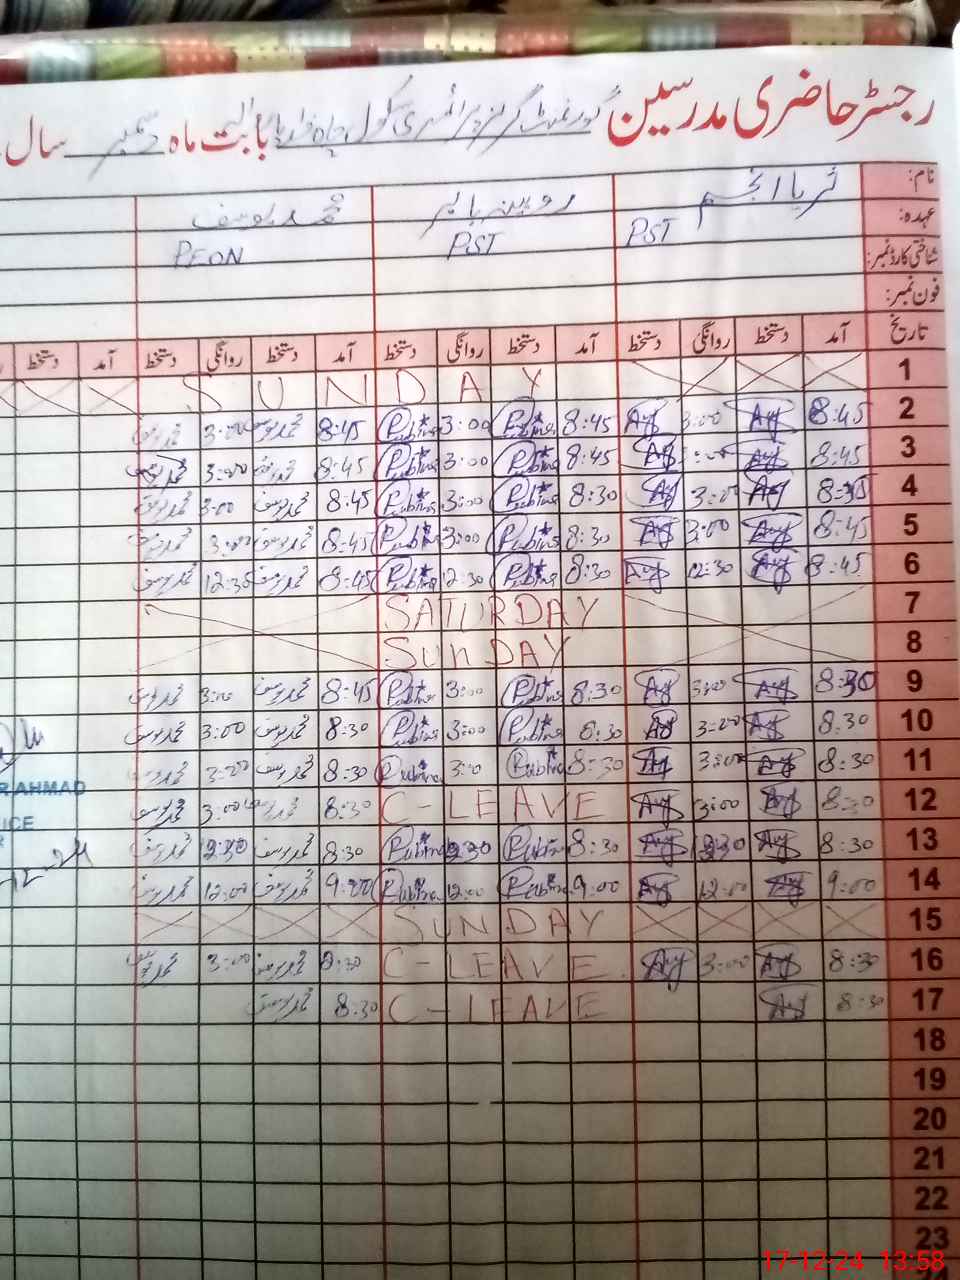 رجسٹر حاضری مدرسین گورنمنٹ گرلز پرائمری سکول چاہ بابت ماہ دسمبر سال
نام: ثریا انجم روبینہ محمد یوسف
عہدہ: PST PST PEON
شناختی کارڈ نمبر:
فون نمبر:
تاریخ آمد دستخط روانگی دستخط آمد دستخط روانگی دستخط آمد دستخط روانگی دستخط آمد دستخط
1 SUNDAY
2 8:45 Auj 3:00 Auj 8:45 Rubina 3:00 Rubina 8:45 محمد یوسف 3:00 محمد یوسف
3 8:45 Auj Auj 8:45 Rubina 3:00 Rubina 8:45 محمد یوسف 3:00 محمد یوسف
4 Auj 3:00 Auj 8:30 Rubina 3:00 Rubina 8:45 محمد یوسف 3:00 محمد یوسف
5 8:45 Auj 3:00 Auj 8:30 Rubina 3:00 Rubina 8:45 محمد یوسف 3:00 محمد یوسف
6 8:45 Auj 12:30 Auj 8:30 Rubina 12:30 Rubina 8:45 محمد یوسف 12:30 محمد یوسف
7 SATURDAY
8 SUNDAY
9 8:30 Auj 3:00 Auj 8:30 Rubina 3:00 Rubina 8:45 محمد یوسف 3:00 محمد یوسف
10 8:30 Auj 3:00 Auj 8:30 Rubina 3:00 Rubina 8:30 محمد یوسف 3:00 محمد یوسف
11 8:30 Auj 3:00 Auj 8:30 Rubina 3:00 Rubina 8:30 محمد یوسف 3:00 محمد یوسف
R AHMAD
12 8:30 Auj 3:00 Auj C-LEAVE 8:30 محمد یوسف 3:00 محمد یوسف
ICE
13 8:30 Auj 12:30 Auj 8:30 Rubina 12:30 Rubina 8:30 محمد یوسف 12:30 محمد یوسف
14 9:00 Auj 12:00 Auj 9:00 Rubina 12:00 Rubina 9:00 محمد یوسف 12:00 محمد یوسف
15 SUNDAY
16 8:30 Auj 3:00 Auj C-LEAVE 8:30 محمد یوسف 3:00 محمد یوسف
17 8:30 Auj C-LEAVE 8:30 محمد یوسف
18
19
20
21
22
23
17-12-24 13:58